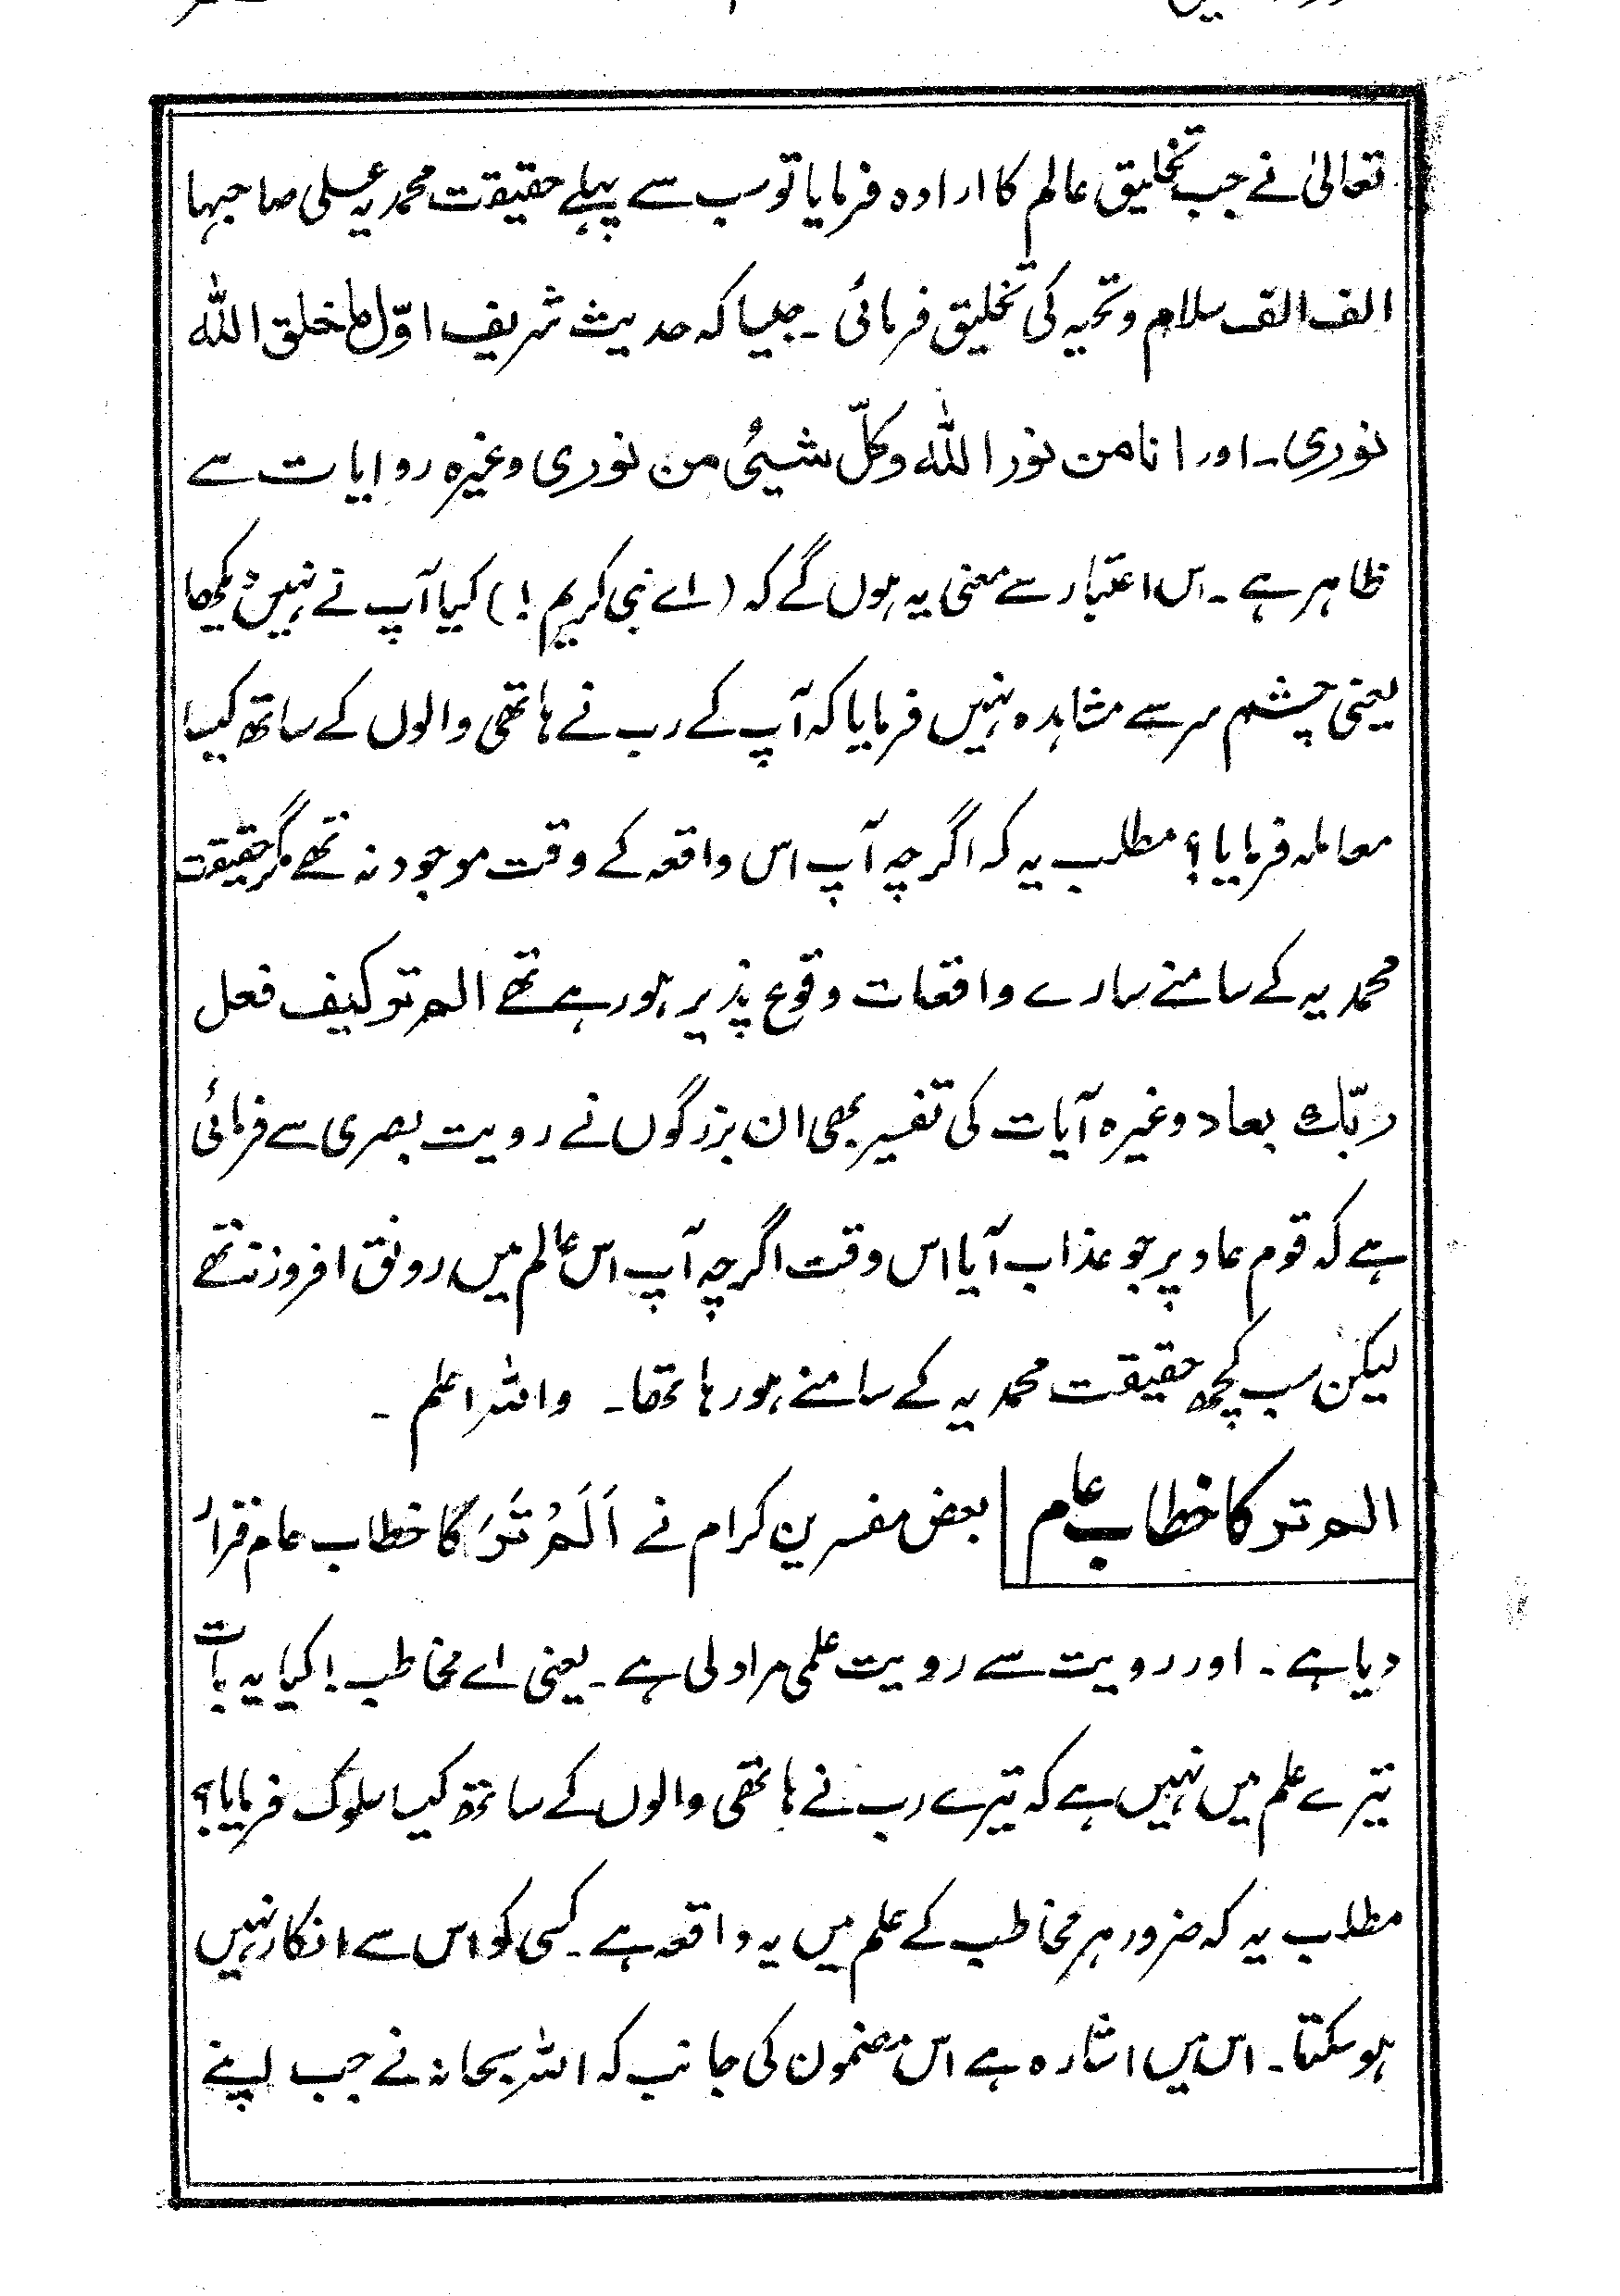 تعالیٰ نے جب تخلیق عالم کا ارادہ فرمایا تو سب سے پہلے حقیقت محمدیہ علی صاحبہا
الف الف سلام و تحیہ کی تخلیق فرمائی۔ جیسا کہ حدیث شریف اوّل ما خلق اللہ
نوری۔ اور انا من نور اللہ وکلّ شیئٌ من نوری وغیرہ روایات سے
ظاہر ہے۔ اس اعتبار سے معنی یہ ہوں گے کہ (اے نبی کریم!) کیا آپ نے نہیں دیکھا
یعنی چشم سر سے مشاہدہ نہیں فرمایا کہ آپ کے رب نے ہاتھی والوں کے ساتھ کیسا
معاملہ فرمایا؟ مطلب یہ کہ اگرچہ آپ اس واقعہ کے وقت موجود نہ تھے مگر حقیقت
محمدیہ کے سامنے سارے واقعات وقوع پذیر ہو رہے تھے الم تر کیف فعل
ربّک بعاد وغیرہ آیات کی تفسیر بھی ان بزرگوں نے رویت بصری سے فرمائی
ہے کہ قوم عاد پر جو عذاب آیا اس وقت اگرچہ آپ اس عالم میں رونق افروز نہ تھے
لیکن سب کچھ حقیقت محمدیہ کے سامنے ہو رہا تھا۔ واللہ اعلم۔
الم تر کا خطاب عام بعض مفسرین کرام نے اَلَمْ تَرَ کا خطاب عام قرار
دیا ہے۔ اور رویت سے رویت علمی مراد لی ہے۔ یعنی اے مخاطب! کیا یہ بات
تیرے علم میں نہیں ہے کہ تیرے رب نے ہاتھی والوں کے ساتھ کیسا سلوک فرمایا؟
مطلب یہ کہ ضرور ہر مخاطب کے علم میں یہ واقعہ ہے۔ کسی کو اس سے انکار نہیں
ہو سکتا۔ اس میں اشارہ ہے اس مضمون کی جانب کہ اللہ سبحانہ نے جب اپنے